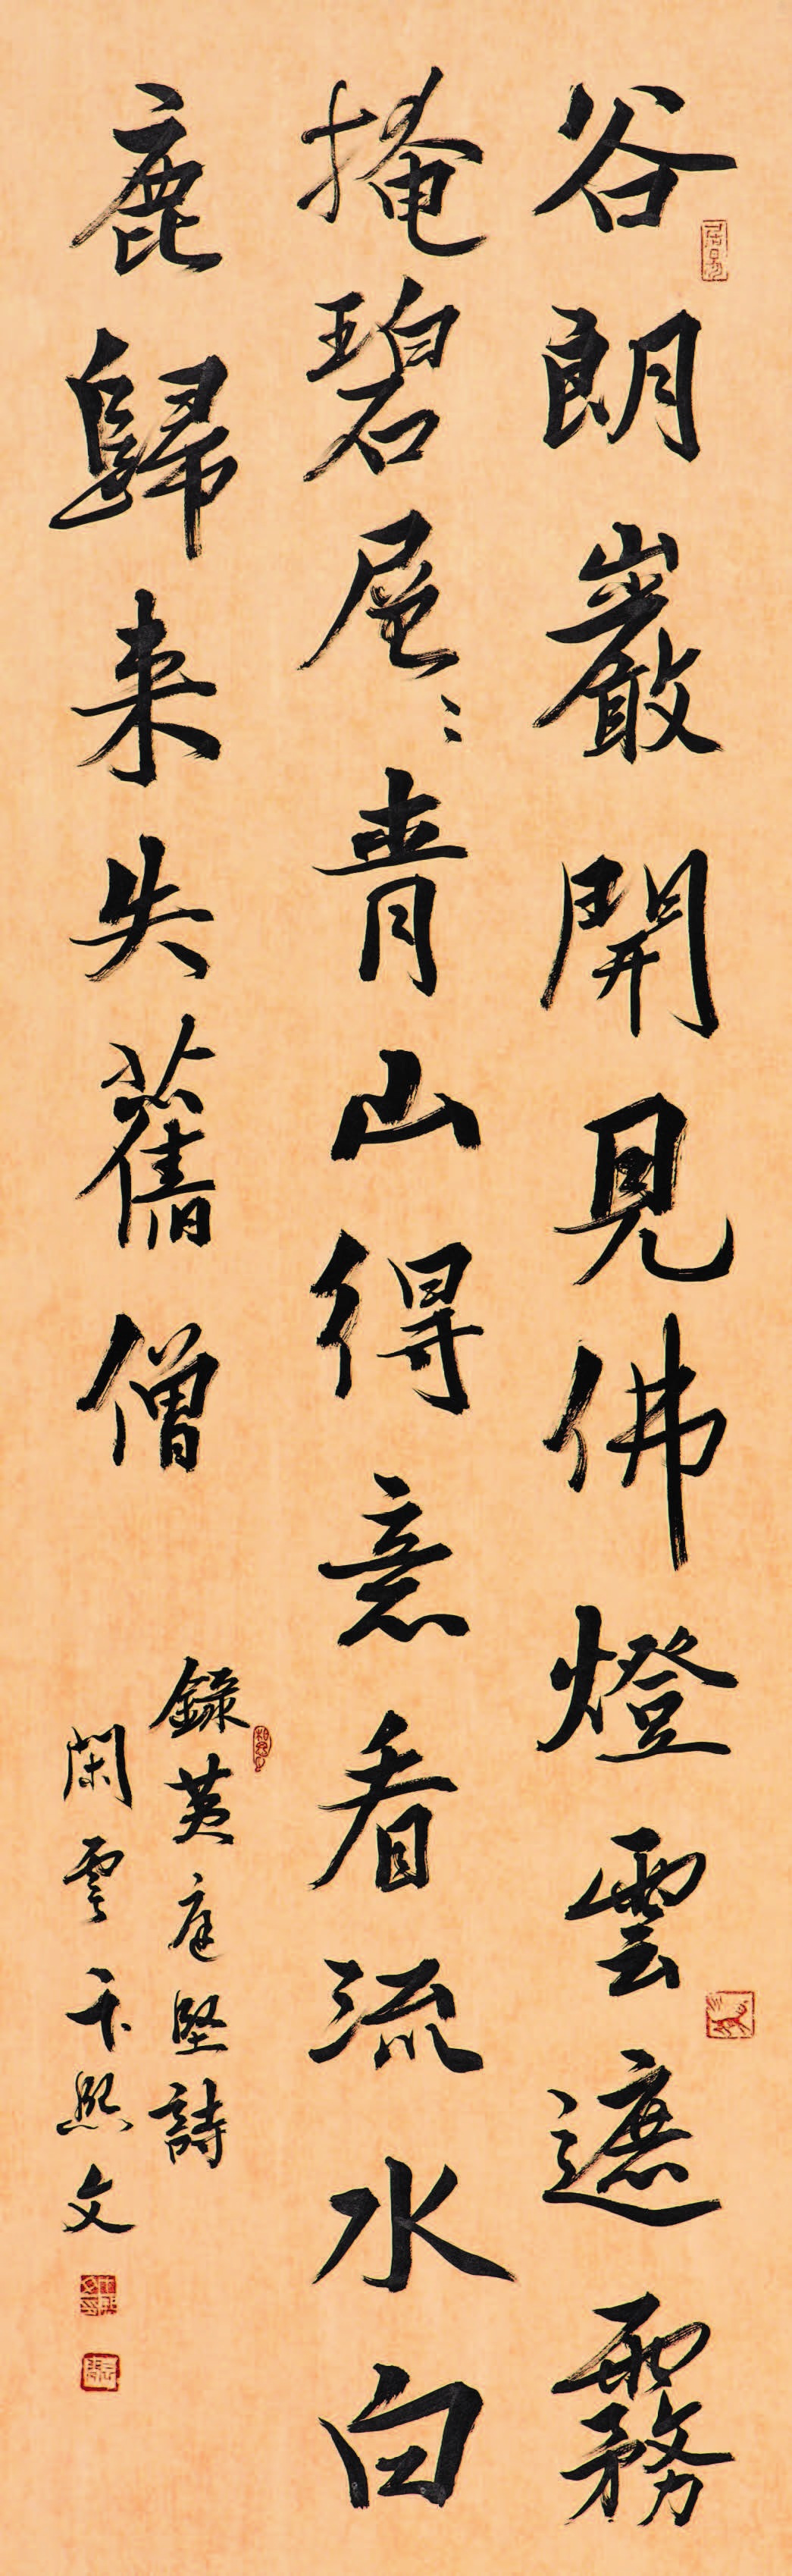 谷朗巖開見佛燈雲遮霧
掩碧層〻青山得意看流水白
鹿歸来失舊僧
錄黃庭堅詩
閑雲卞熙文
居易